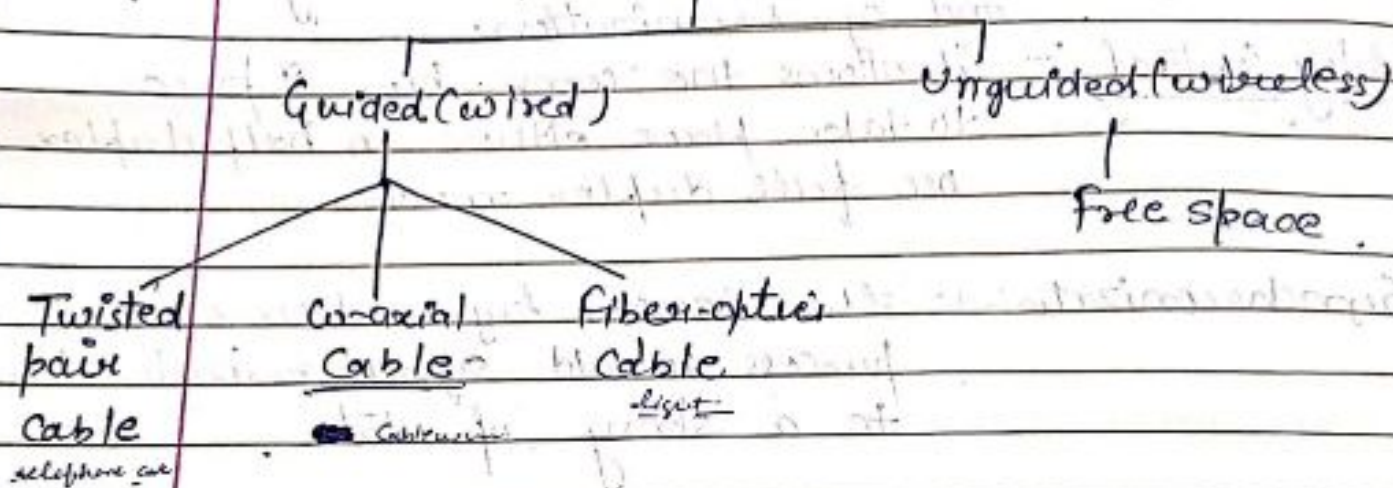 Guided (wired)
Unguided (wireless)
free space.
Twisted
pair
Cable
telephone
Co-axial
Cable
Fiber-optic
Cable
light